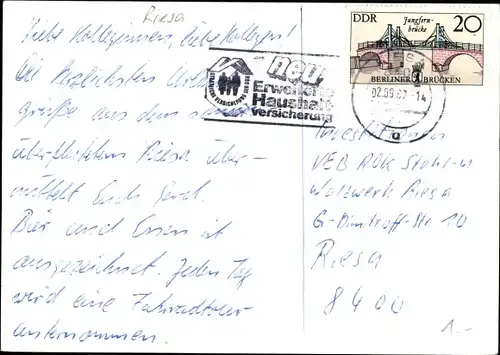 Riesa
Liebe Kolleginnen, liebe Kollegen!
Die herzlichsten Urlaubs-
grüße aus dem
überfluteten Riesa über-
mittelt Euch Gerd.
Bier und Essen ist
ausgezeichnet. Jeden Tag
wird eine Fahrradtour
unternommen.
neu
Erweiterte
Haushalt-
versicherung
DDR
Jungfern-
brücke
20
BERLINER BRÜCKEN
02.09.87-14
VEB Rohr Stahl-u
Walzwerk Riesa
G-Dimitroff-Str 10
Riesa
8400
1.-